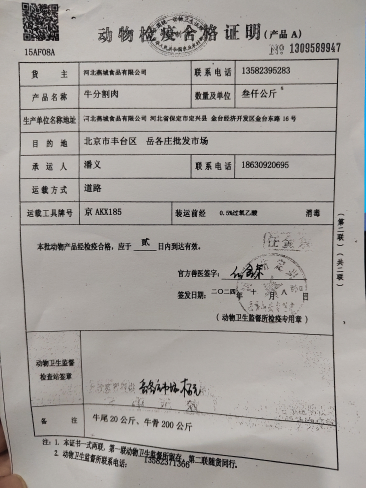 动物检疫合格证明(产品 A)
15AF08A
№ 1309589947
货主 河北燕城食品有限公司 联系电话 13582395283
产品名称 牛分割肉 数量及单位 叁仟公斤
生产单位名称地址 河北燕城食品有限公司 河北省保定市定兴县 金台经济开发区金台东路 16号
目的地 北京市丰台区 岳各庄批发市场
承运人 潘义 联系电话 18630920695
运载方式 道路
运载工具牌号 京 AKX185 装运前经 0.5%过氧乙酸 消毒
本批动物产品经检疫合格,应于 贰 日内到达有效。
官方兽医签字:
签发日期:二〇二四年 十 月 八
(动物卫生监督所检疫专用章)
动物卫生监督
检查站签章
备注 牛尾 20 公斤、牛骨 200 公斤
注:1. 本证书一式两联,第一联动物卫生监督所留存,第二联随货同行。
2. 动物卫生监督所联系电话: 13582371366
(第二联)(共二联)